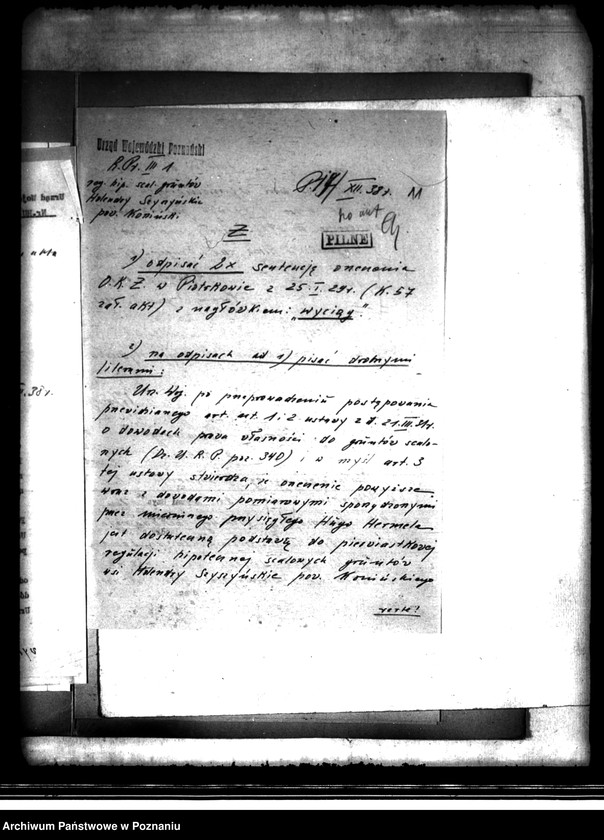 Urząd Wojewódzki Poznański
R.Pr. III 1
reg. hip. scal. gruntów
Holendry Szyszyńskie
pow. Koniński.
P. 17/XII.38r. 11
PILNE
Z
1) odpisać 2x sentencję orzeczenia
O.K.Z. w Piotrkowie z 25.I.29r. (K.57
zał. akt) z nagłówkiem: "wyciąg".
2) na odpisach ad 1) pisać drobnymi
literami:
Urz. Woj. po przeprowadzeniu postępowania
przewidzianego art. art. 1 i 2 ustawy z d. 21.III.31r.
o dowodach prawa własności do gruntów scalo-
nych (Dz.U.R.P. poz. 340) i w myśl art. 3
tej ustawy stwierdza, że orzeczenie powyższe
wraz z dowodami pomiarowymi sporządzonymi
przez mierniczego przysięgłego Hugo Hermela
jest dostateczną podstawą do pierwiastkowej
regulacji hipotecznej scalonych gruntów
wsi Holendry Szyszyńskie pow. Konińskiego
verte!
Urząd Woj
Nr.
38 r.
Archiwum Państwowe w Poznaniu